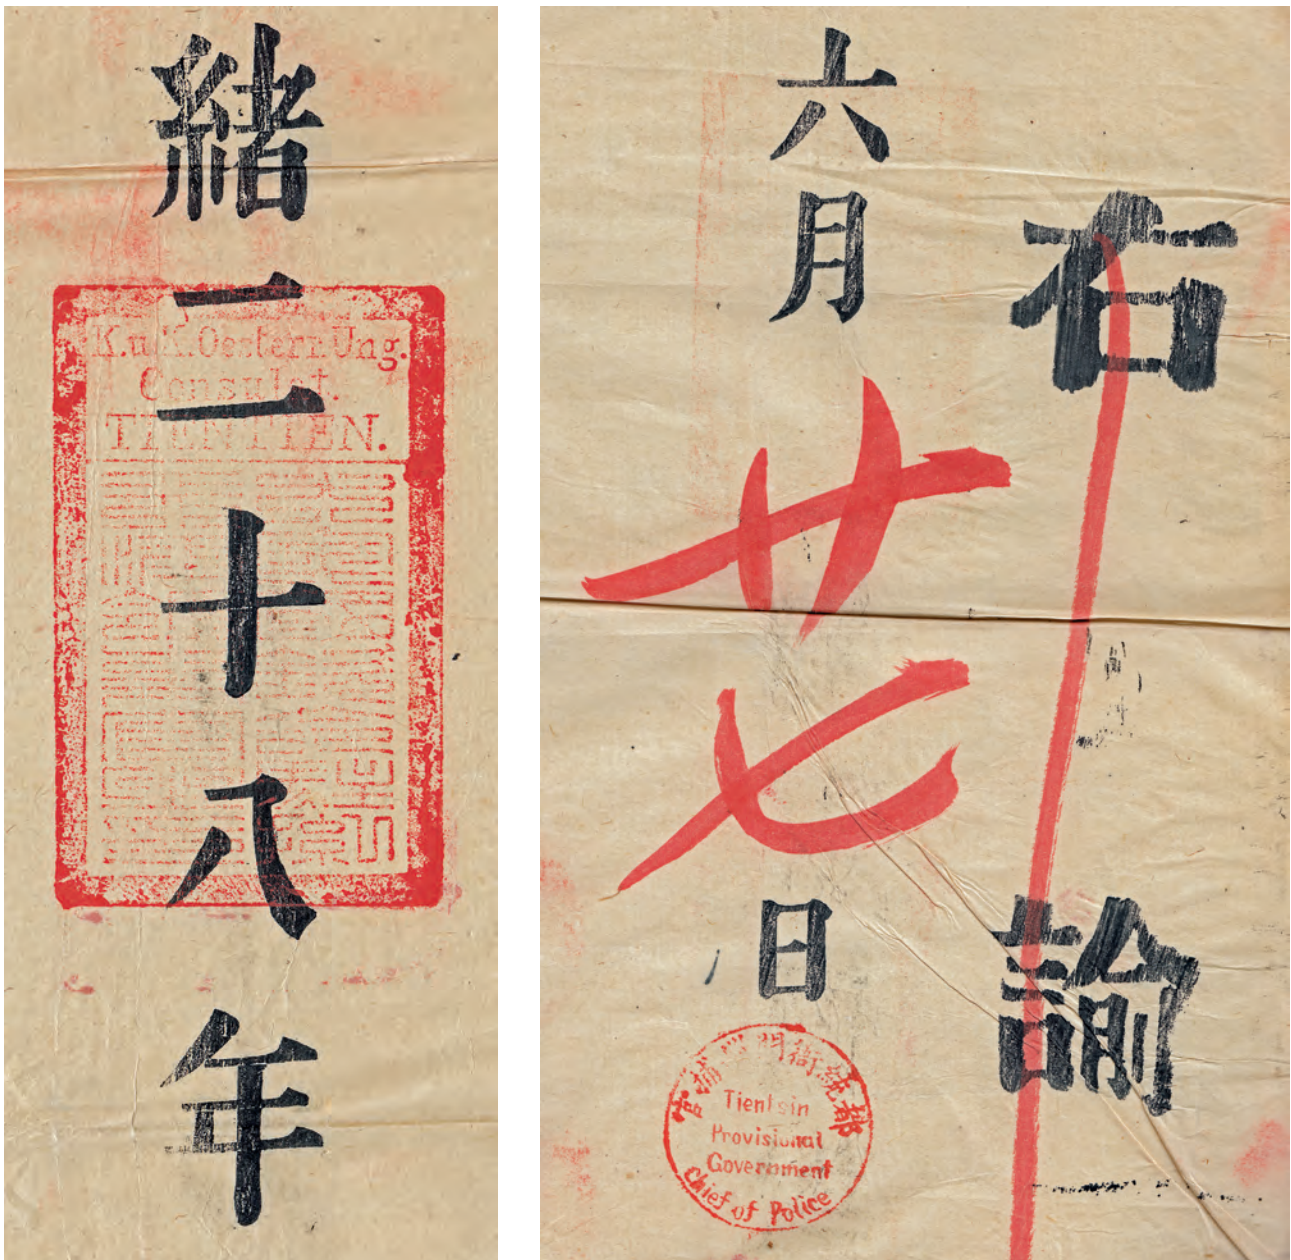 緒二十八年
K.u.K.Oesterr.Ung.
Consulat.
右諭
六月廿七日
都統衙門巡捕官
Tientsin
Provisional
Government
Chief of Police